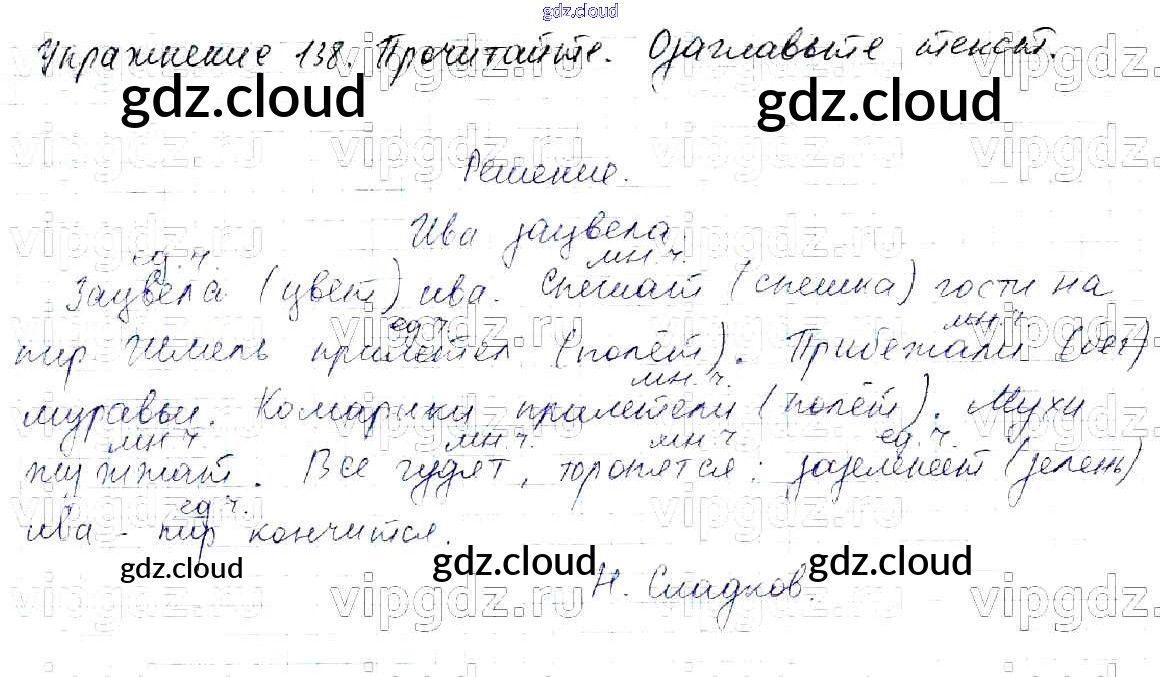 gdz.cloud
Упражнение 138. Прочитайте. Озаглавьте текст.
gdz.cloud gdz.cloud
Решение.
Ива зацвела
ед. ч. мн. ч.
Зацвела (цвет) ива. Спешат (спешка) гости на
ед. ч. мн. ч.
пир. Шмель прилетел (полёт). Прибежали (бег)
мн. ч.
муравьи. Комарики прилетели (полёт). Мухи
мн ч. мн ч. мн. ч. ед. ч.
жужжат. Все гудят, торопятся: зазеленеет (зелень)
ед ч.
ива - пир кончится.
gdz.cloud gdz.cloud gdz.cloud
Н. Сладков.